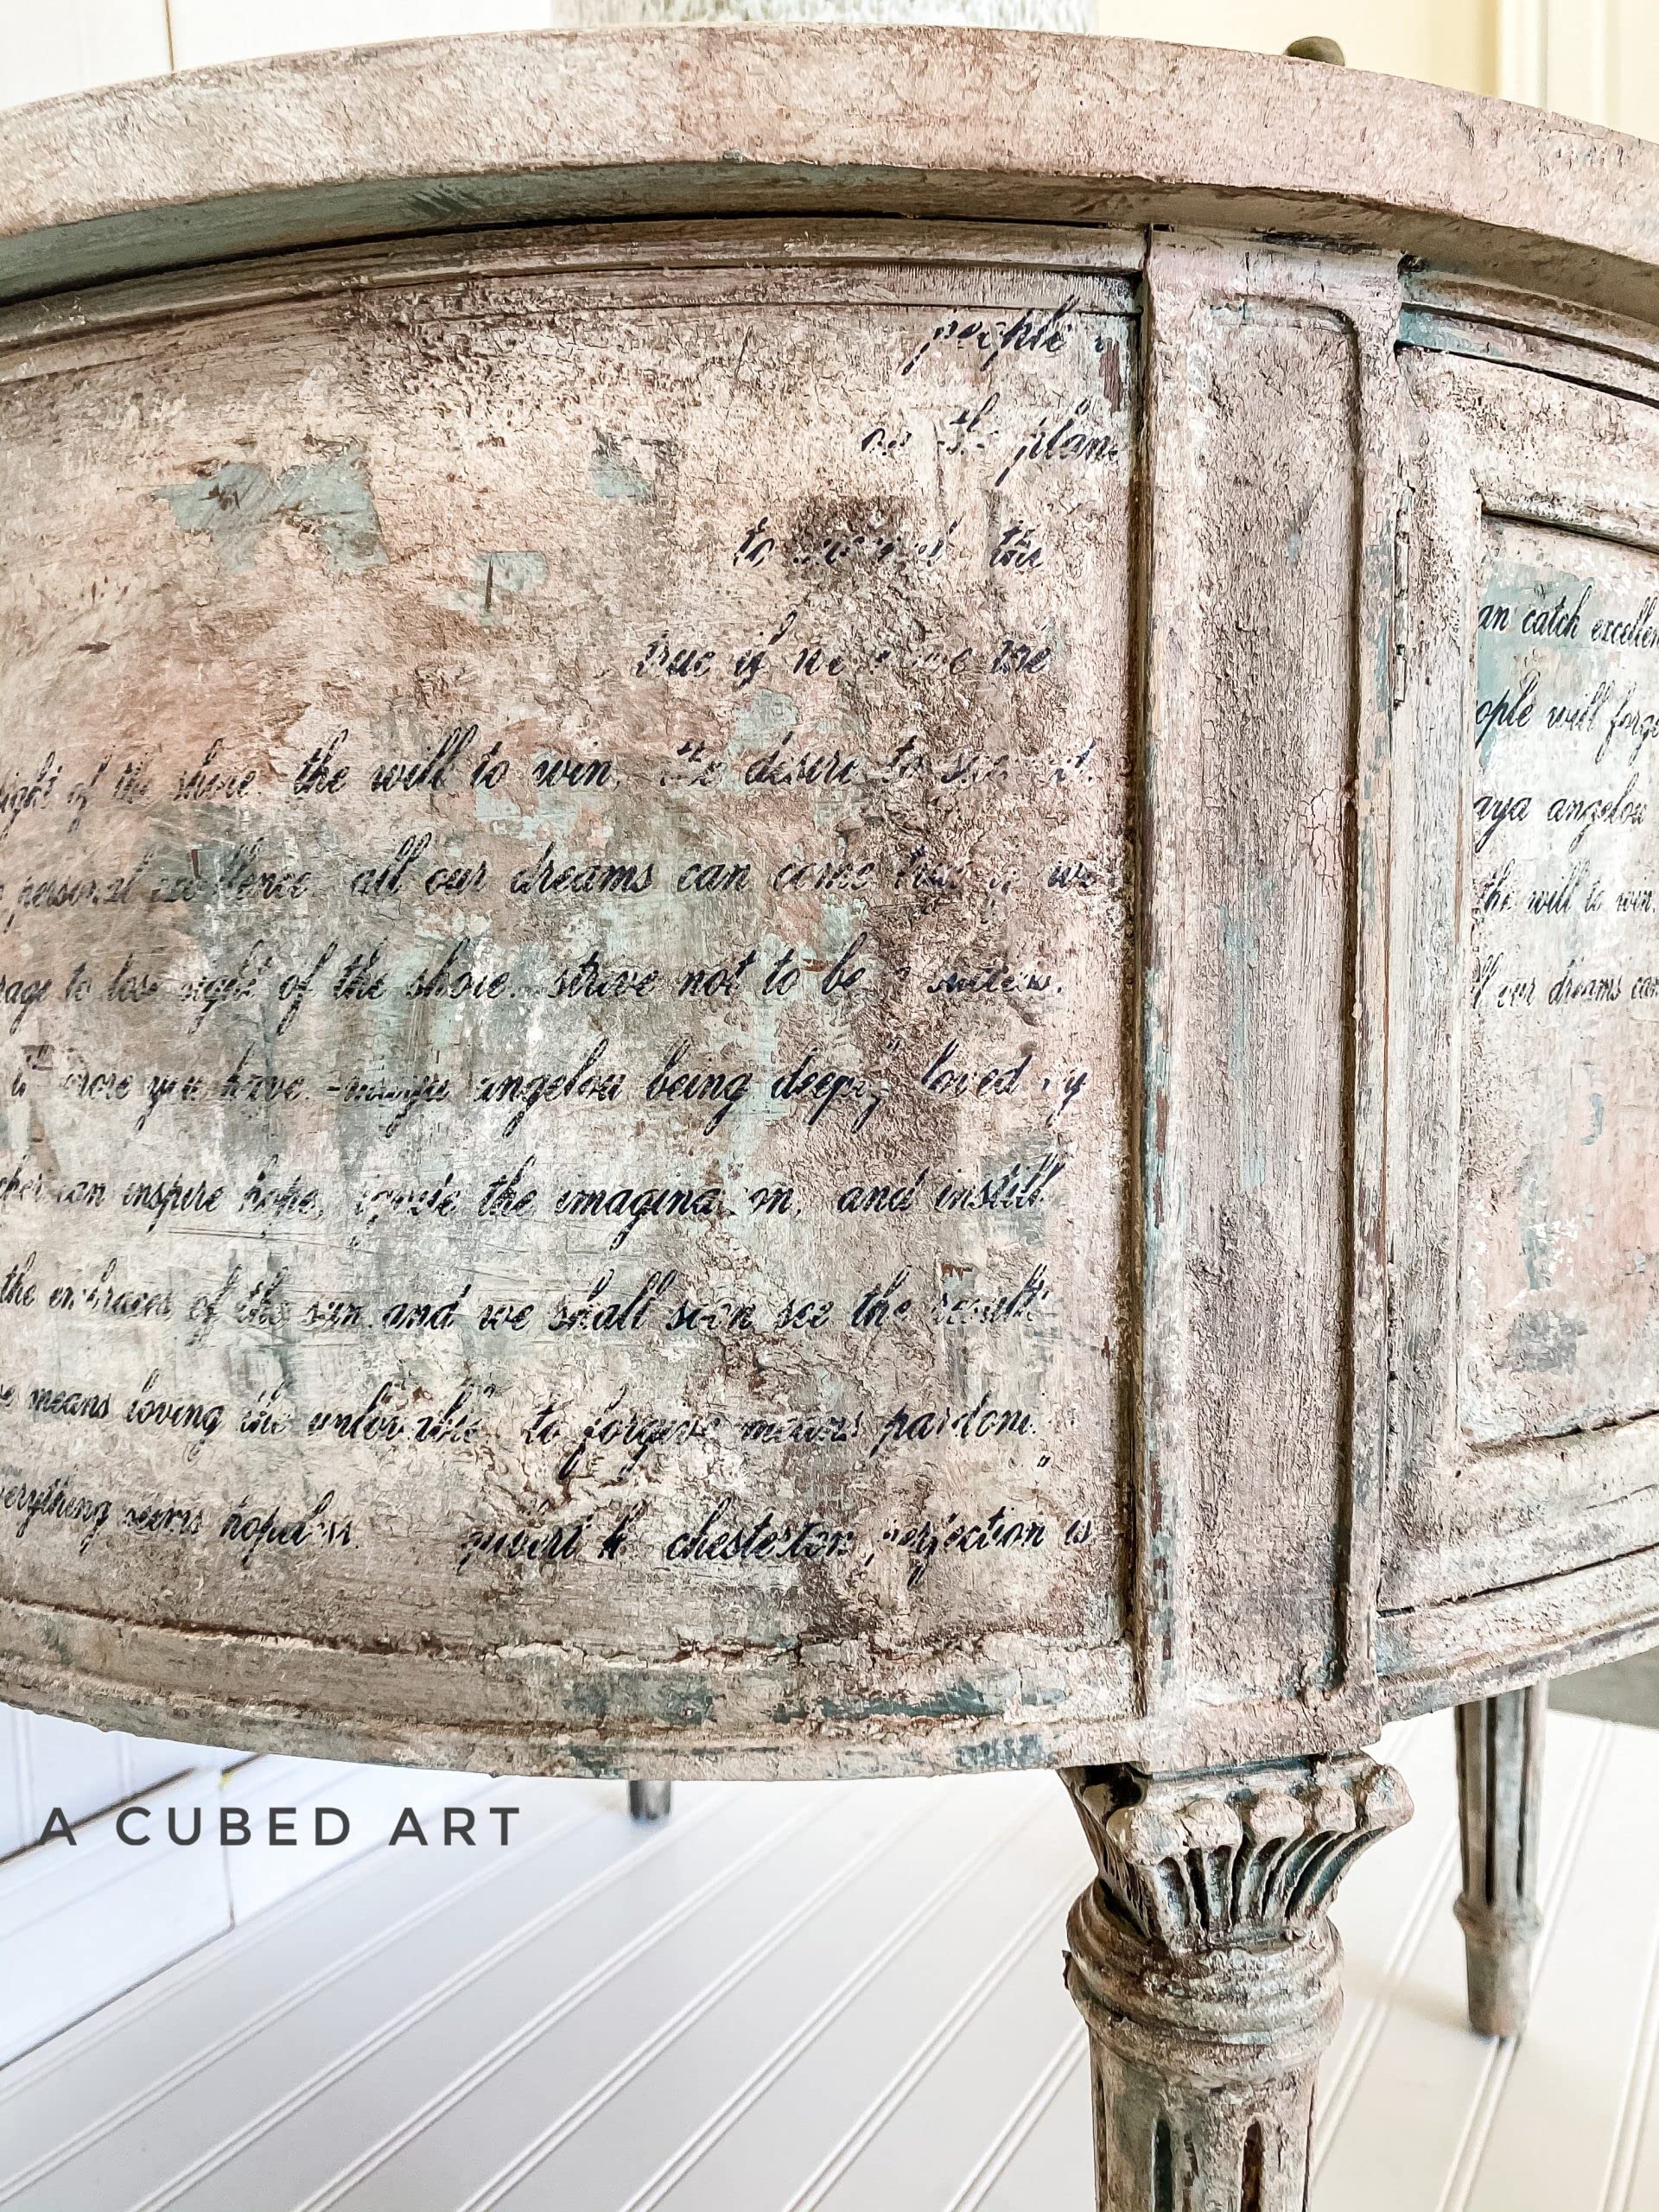 people
plane
to the
true if we the
of the shine. the will to win, the desire to
personal excellence. all our dreams can come true if we
to lose sight of the shore. strive not to be a success,
more you have. -maya angelou being deeply loved by
can inspire hope, ignite the imagination, and instill
the embraces of the sun and we shall soon see the results
means loving the unlovable. to forgive means pardon
seems hopeless. gilbert k chesterton perfection is
an catch excellen
ople will forge
aya angelou
the will to win,
our dreams can
A CUBED ART